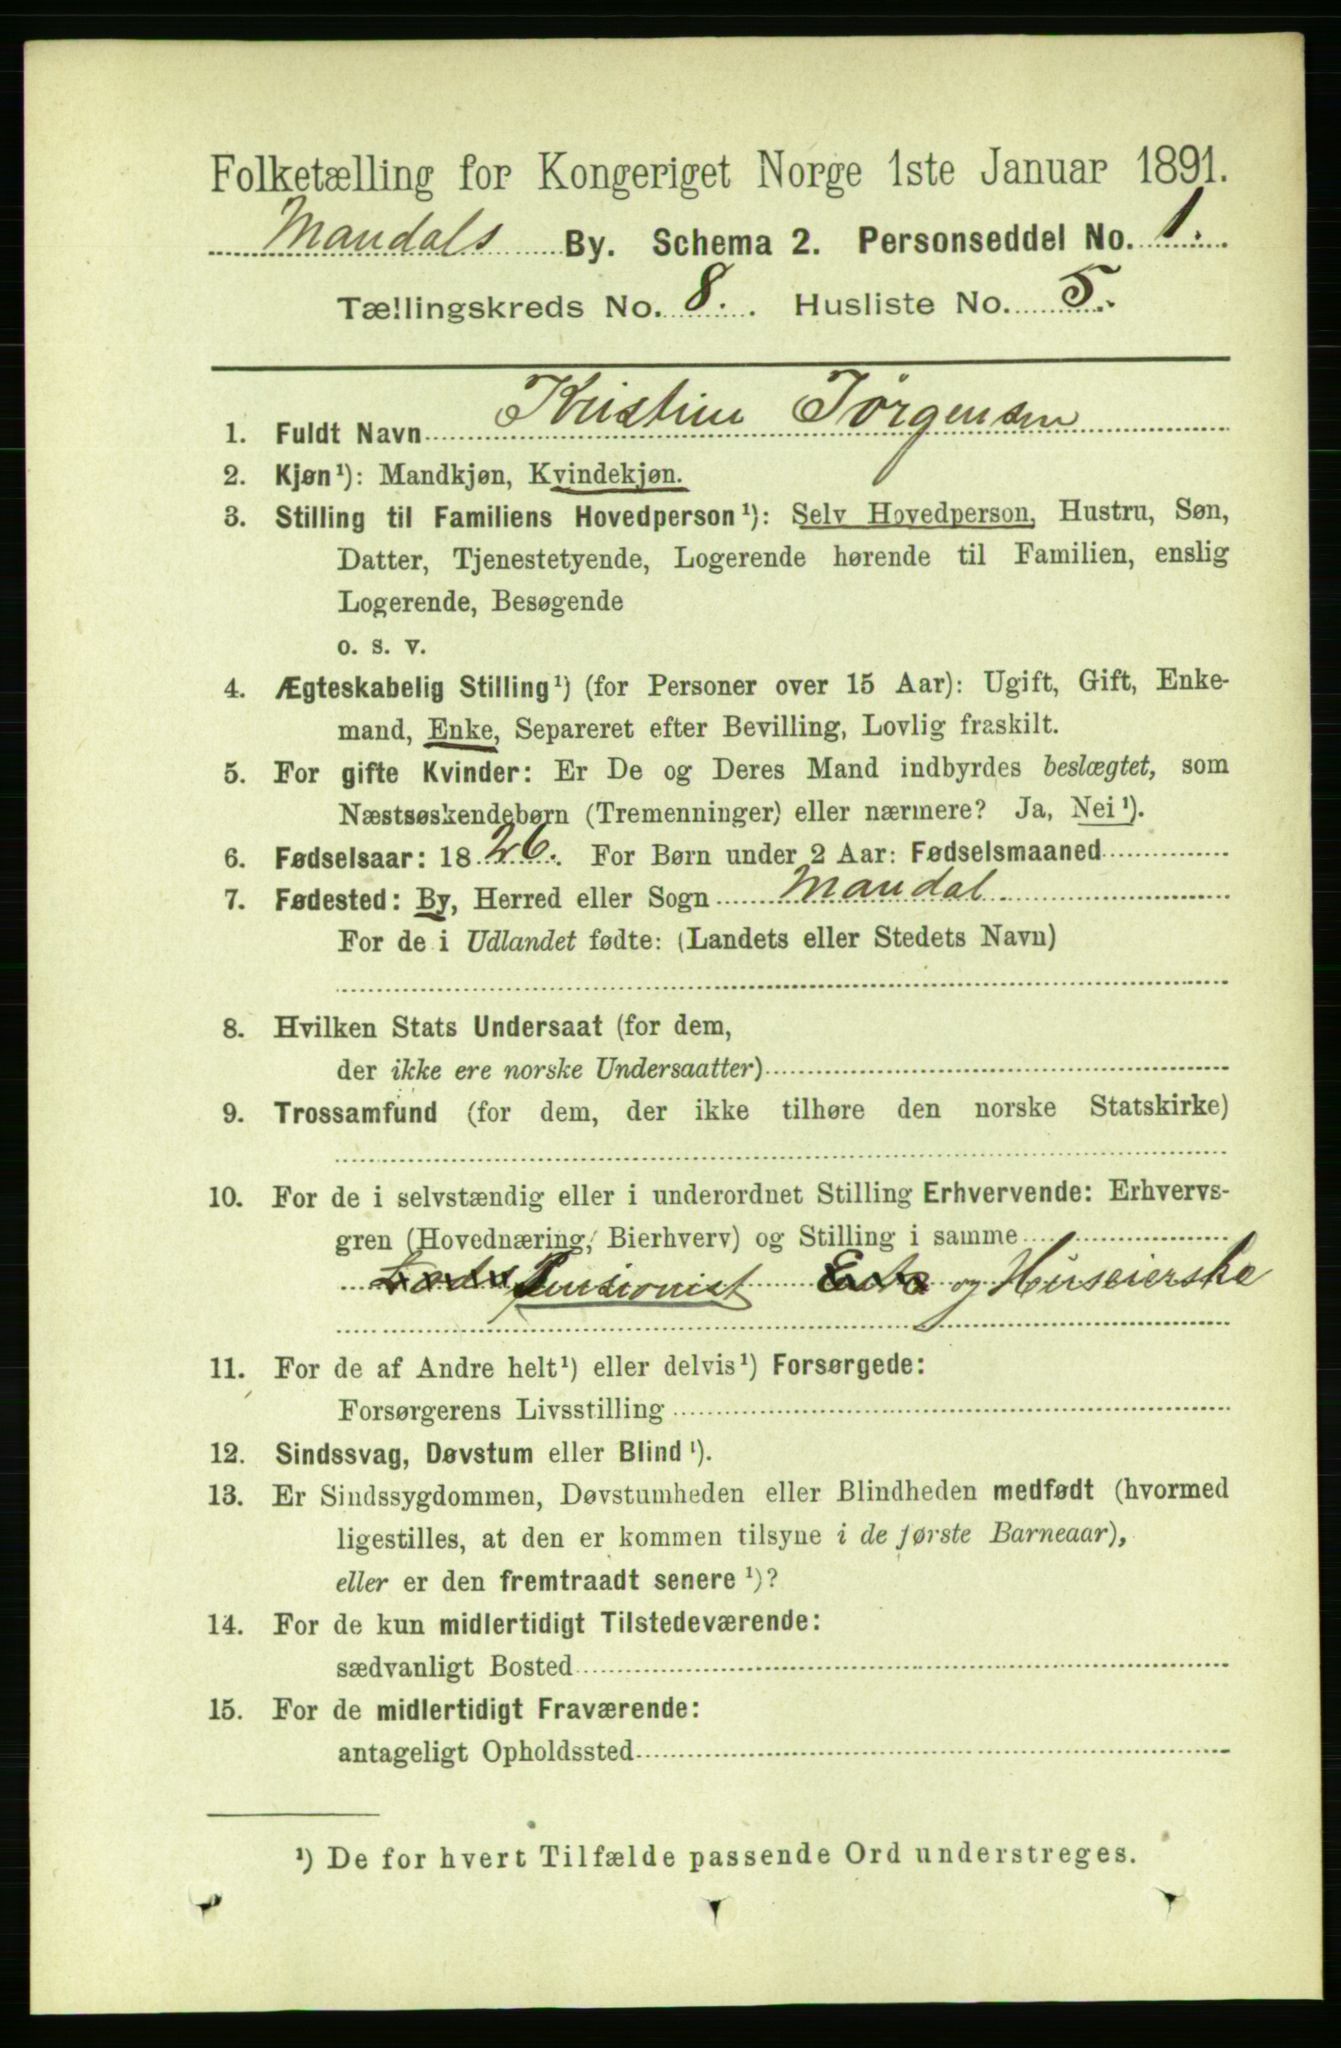 Folketælling for Kongeriget Norge 1ste Januar 1891.
Mandals By. Schema 2. Personseddel No. 1.
Tællingskreds No. 8. Husliste No. 5.
1. Fuldt Navn Kristine Jörgensen
2. Kjøn¹): Mandkjøn, Kvindekjøn.
3. Stilling til Familiens Hovedperson¹): Selv Hovedperson, Hustru, Søn,
Datter, Tjenestetyende, Logerende hørende til Familien, enslig
Logerende, Besøgende
o. s. v.
4. Ægteskabelig Stilling¹) (for Personer over 15 Aar): Ugift, Gift, Enke-
mand, Enke, Separeret efter Bevilling, Lovlig fraskilt.
5. For gifte Kvinder: Er De og Deres Mand indbyrdes beslægtet, som
Næstsøskendebørn (Tremenninger) eller nærmere? Ja, Nei¹).
6. Fødselsaar: 1826. For Børn under 2 Aar: Fødselsmaaned
7. Fødested: By, Herred eller Sogn Mandal
For de i Udlandet fødte: (Landets eller Stedets Navn)
8. Hvilken Stats Undersaat (for dem,
der ikke ere norske Undersaatter)
9. Trossamfund (for dem, der ikke tilhøre den norske Statskirke)
10. For de i selvstændig eller i underordnet Stilling Erhvervende: Erhvervs-
gren (Hovednæring, Bierhverv) og Stilling i samme
Pensionist og Huseierske
11. For de af Andre helt¹) eller delvis¹) Forsørgede:
Forsørgerens Livsstilling
12. Sindssvag, Døvstum eller Blind¹).
13. Er Sindssygdommen, Døvstumheden eller Blindheden medfødt (hvormed
ligestilles, at den er kommen tilsyne i de første Barneaar),
eller er den fremtraadt senere¹)?
14. For de kun midlertidigt Tilstedeværende:
sædvanligt Bosted
15. For de midlertidigt Fraværende:
antageligt Opholdssted
¹) De for hvert Tilfælde passende Ord understreges.